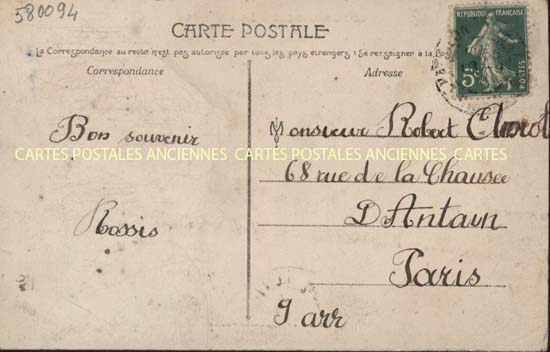 580094
CARTE POSTALE
La Correspondance au recto n'est pas autorisée par tous les pays étrangers (Se renseigner à la Pos
Correspondance
Adresse
REPUBLIQUE FRANÇAISE
5c
POSTES
Bon souvenir
Rossis
Monsieur Robert
68 rue de la Chausee
D'Antain
Paris
9 arr
CARTES POSTALES ANCIENNES CARTES POSTALES ANCIENNES CARTES